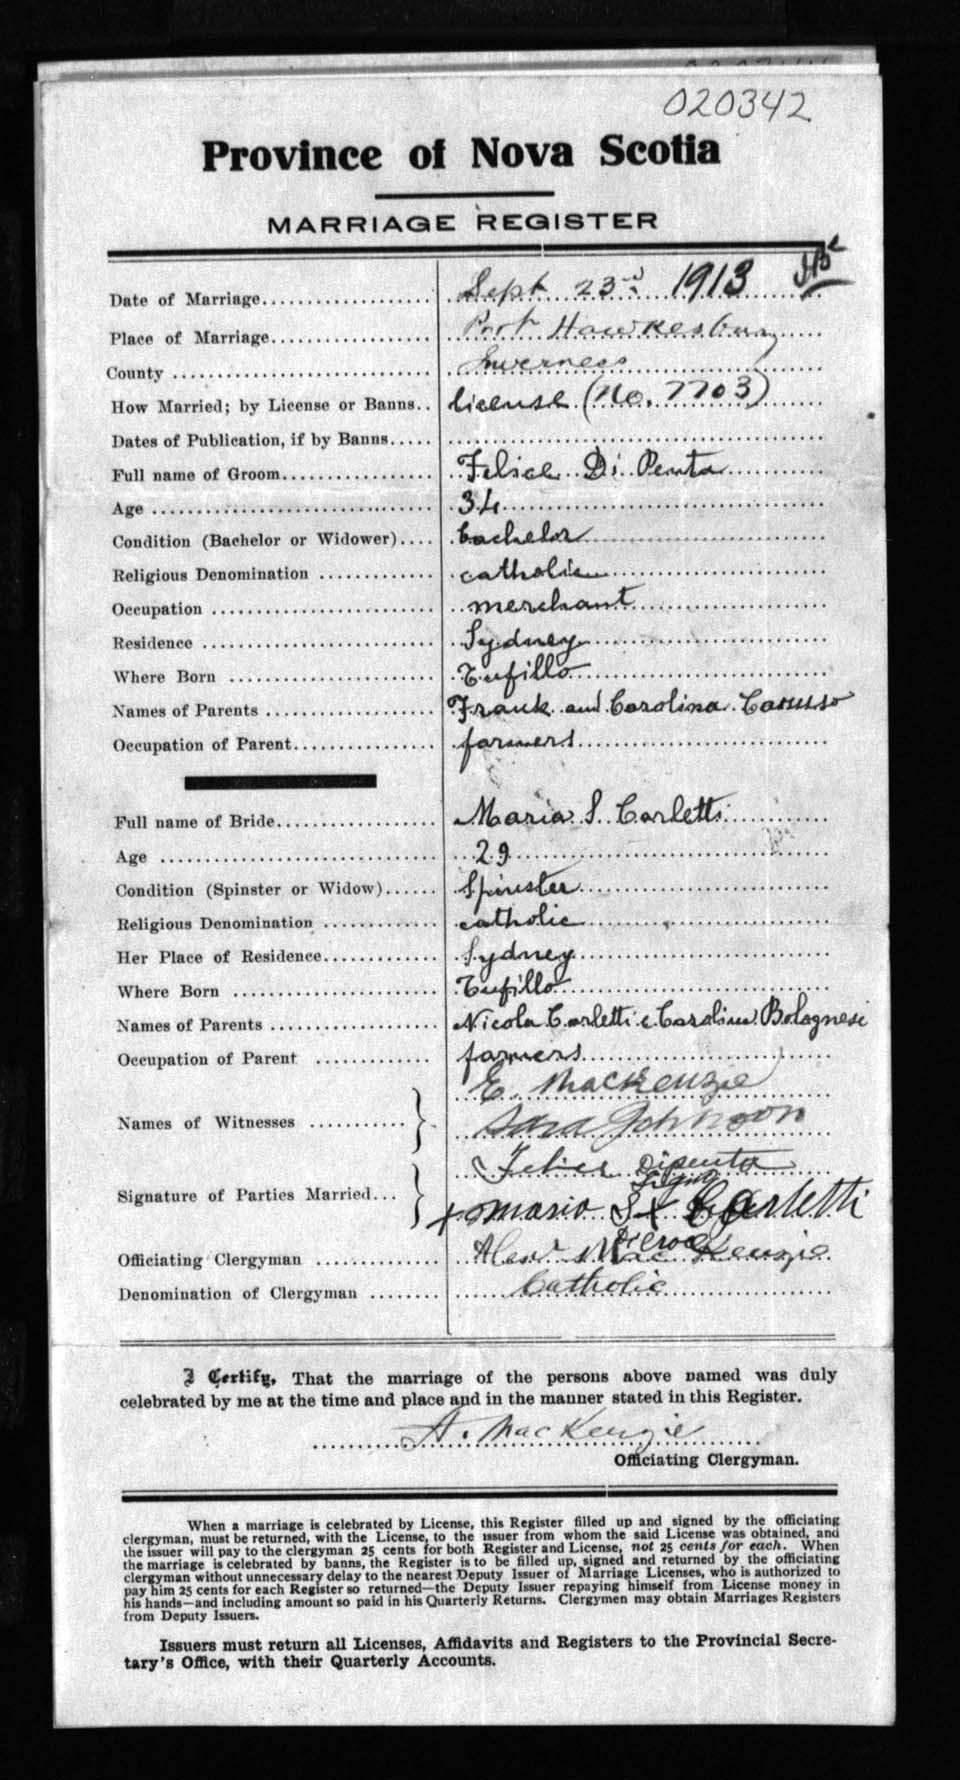 020342
Province of Nova Scotia
MARRIAGE REGISTER
Date of Marriage.................... Sept 23rd 1913
Place of Marriage.................. Port Hawkesbury
County ............................. Inverness
How Married; by License or Banns.. license (No. 7703)
Dates of Publication, if by Banns.....
Full name of Groom................. Felice Di Penta
Age ................................ 34
Condition (Bachelor or Widower).... bachelor
Religious Denomination ............. catholic
Occupation ......................... merchant
Residence .......................... Sydney
Where Born ........................ Tufillo
Names of Parents ................... Frank and Carolina Caruso
Occupation of Parent................ farmers
Full name of Bride.................. Maria S. Carletti
Age ................................ 29
Condition (Spinster or Widow)...... Spinster
Religious Denomination ............. catholic
Her Place of Residence............. Sydney
Where Born ........................ Tufillo
Names of Parents ................... Nicola Carletti e Carolina Bolognese
Occupation of Parent .............. farmers
E. MacKenzie
Names of Witnesses ........... Sara Johnson
Felice Dipenta
Signature of Parties Married... + Maria S + Carletti
Officiating Clergyman .............. Alex MacKenzie
Denomination of Clergyman ........ Catholic
I Certify, That the marriage of the persons above named was duly
celebrated by me at the time and place and in the manner stated in this Register.
A. MacKenzie
Officiating Clergyman.
When a marriage is celebrated by License, this Register filled up and signed by the officiating
clergyman, must be returned, with the License, to the issuer from whom the said License was obtained, and
the issuer will pay to the clergyman 25 cents for both Register and License, not 25 cents for each. When
the marriage is celebrated by banns, the Register is to be filled up, signed and returned by the officiating
clergyman without unnecessary delay to the nearest Deputy Issuer of Marriage Licenses, who is authorized to
pay him 25 cents for each Register so returned—the Deputy Issuer repaying himself from License money in
his hands—and including amount so paid in his Quarterly Returns. Clergymen may obtain Marriages Registers
from Deputy Issuers.
Issuers must return all Licenses, Affidavits and Registers to the Provincial Secre-
tary's Office, with their Quarterly Accounts.